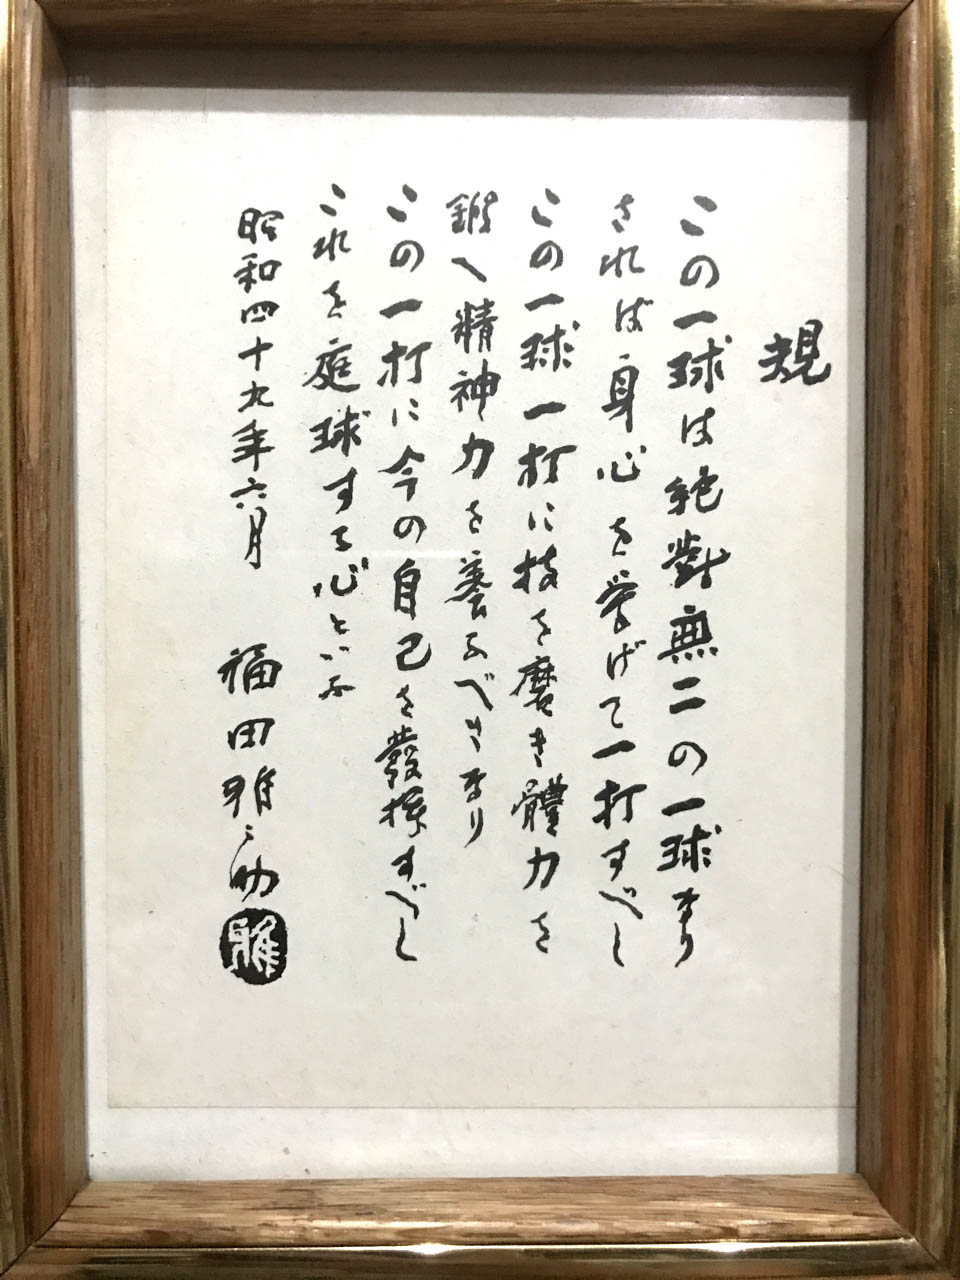 規
この一球は絶對無二の一球なり
されば身心を挙げて一打すべし
この一球一打に技を磨き體力を
鍛へ精神力を養ふべきなり
この一打に今の自己を發揮すべし
これを庭球する心といふ
昭和四十九年六月 福田雅之助
雅